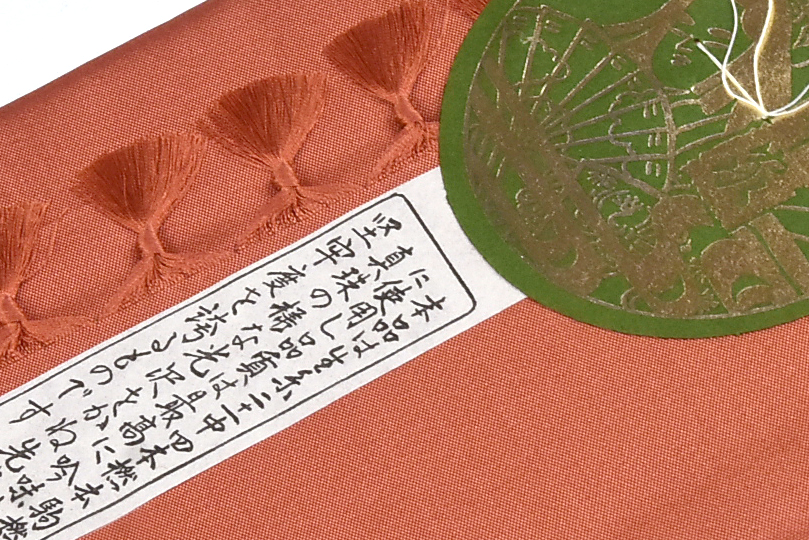 本品は生糸二十一中四本撚本駒撚
に使用し品質は最高に吟味
真珠の様な光沢をかね先
堅牢度を誇るものです